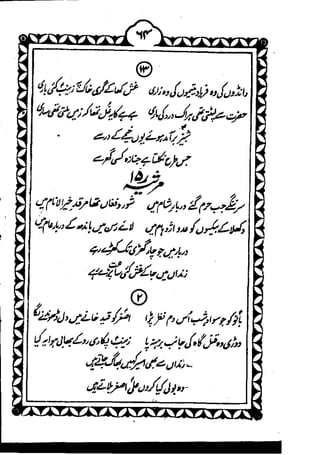 ۶۴
۱۳
رانڈوں کی وہ فریاد یتیموں کی وہ زاری غش کھا کے گری خاک پہ زینبؑ کئی باری
حضرت سے لپٹتی تھی ہر اک درد کی ماری ہے ہے کا یہ غل تھا کہ زمیں ہلتی تھی ساری
شبیرؑ برآمد ہوئے یوں خیمے کے در سے
جس طرح نکلتا ہے جنازہ کسی گھر سے
مرثیہ ۱۵
سر ننگے جب حرم گئے دربار شام میں شور و فغاں تھا مرقد خیرالانام میں
دکھلا کے بیکسوں کو عدو اژدہام میں لائے رسن میں باندھ کے دربار عام میں
دربار میں جو چار گھڑی تک کھڑے رہے
زنداں میں جا کے غش کئی
۲
بانو کو جو سواد شب اس دم نظر پڑا اصغرؑ کو قید خانے میں دل ڈھونڈنے لگا
دوڑی وہ قتل گاہ کی جانب برہنہ پا زینبؑ پکاری رو کے بھابی ہوا یہ کیا
زنداں سے بھی اسیر کہیں بھاگ جاتے ہیں
وہ بولی کیا کروں علی اصغرؑ بلاتے ہیں